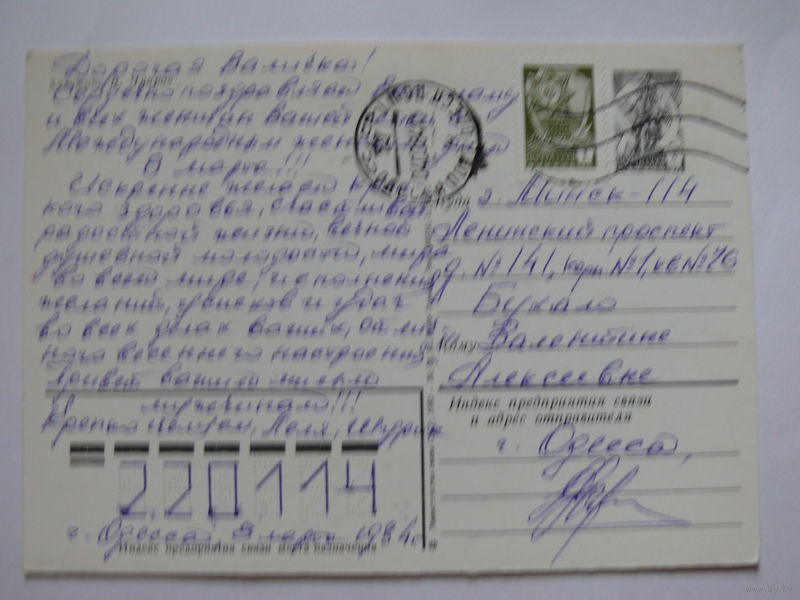 Дорогая Валичка!
Сердечно поздравляем Вас, маму
и всех женщин вашей семьи с
Международным женским днём
8 марта!!!
Искренне желаем креп-
кого здоровья, счастливой
радостной жизни, вечной
душевной молодости, мира
во всем мире, исполнения
желаний, успехов и удач
во всех делах ваших, отлич
ного весеннего настроения
Привет вашим милым
мужчинам!!!
Крепко целуем, Лёля,
220114
г. Одесса, 3 марта 198
Индекс предприятия связи места назначения
Куда г. Минск-114
Ленинский проспект
д. № 141, корп №1, кв №76
Букало
Кому Валентине
Алексеевне
Индекс предприятия связи
и адрес отправителя
г. Одесса,
www.ay.by